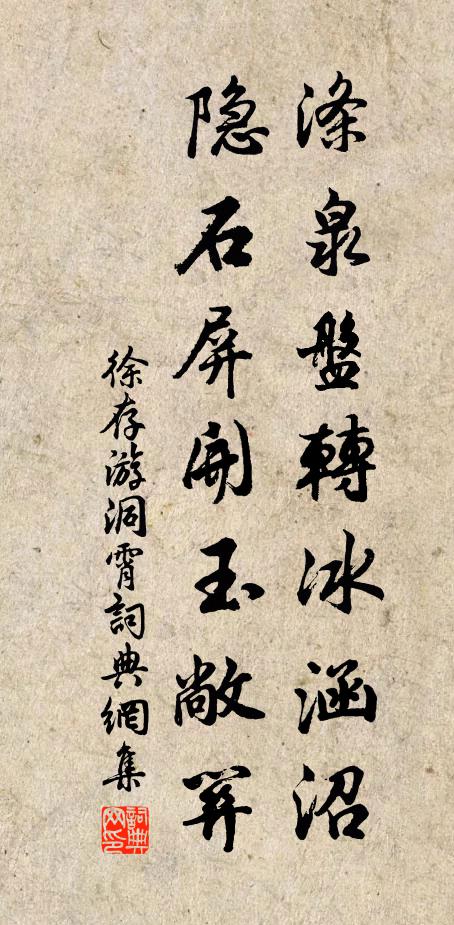 涤泉盤轉冰涵沼
隐石屏開玉敞關
徐存游洞霄詞典網集
詞典網印